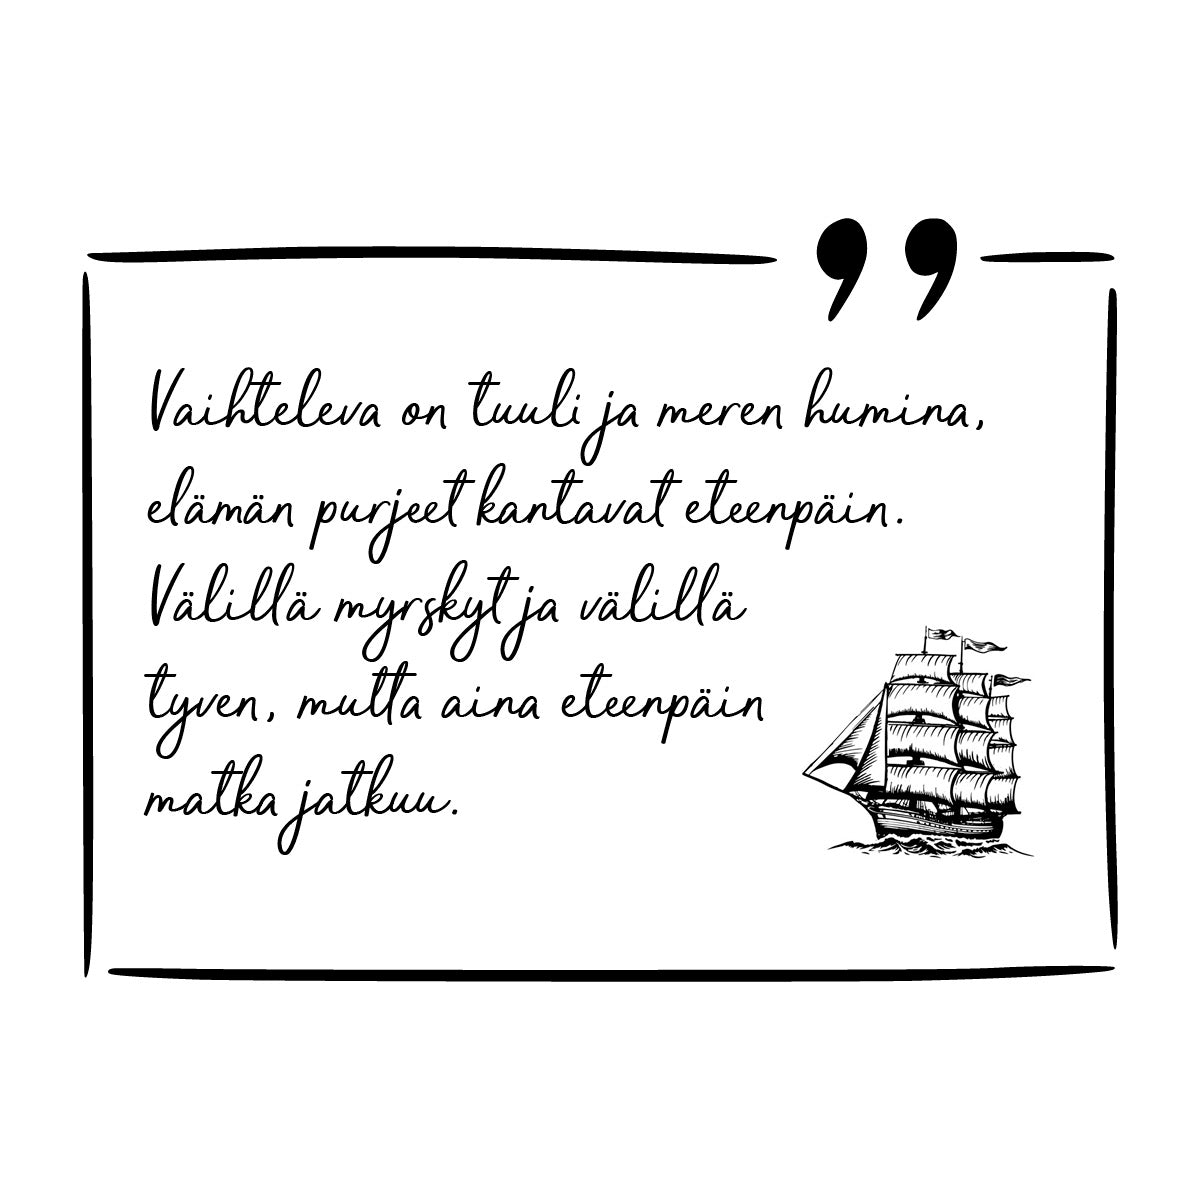 Vaihteleva on tuuli ja meren humina,
elämän purjeet kantavat eteenpäin.
Välillä myrskyt ja välillä
tyven, mutta aina eteenpäin
matka jatkuu.